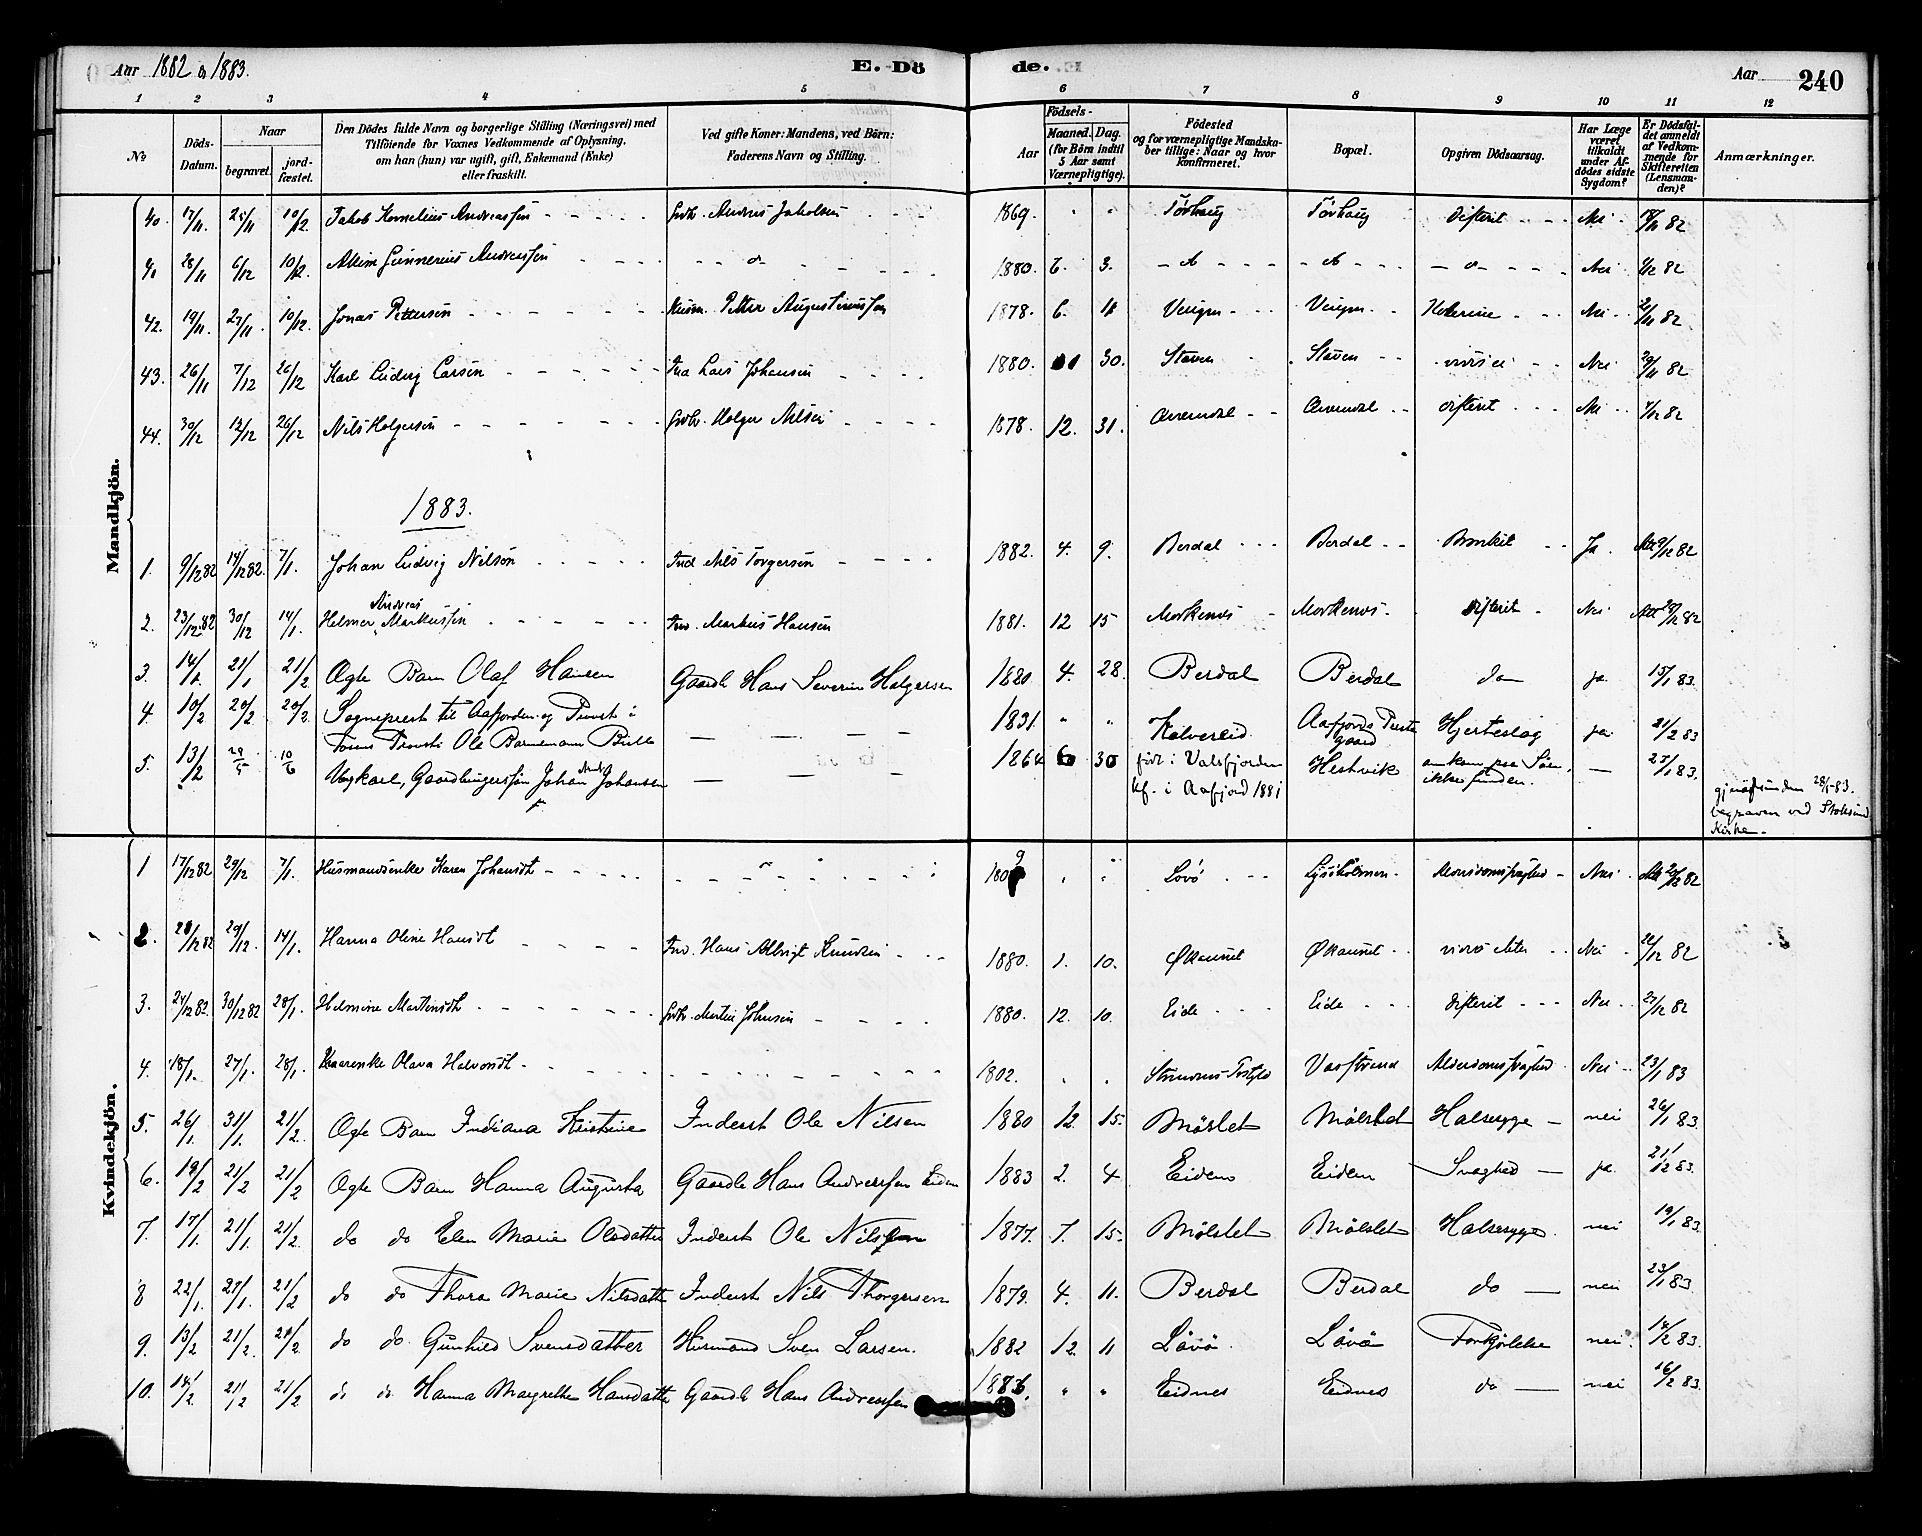 Aar 1882 & 1883.
E. Dö
de.
Aar
240
1 2 3 4 5 6 7 8 9 10 11 12
No
Döds-
Datum.
Naar
begravet.
jord-
fæstet.
Den Dödes fulde Navn og borgerlige Stilling (Næringsvei) med
Tilföiende for Voxnes Vedkommende af Oplysning,
om han (hun) var ugift, gift, Enkemand (Enke)
eller fraskilt.
Ved gifte Koner: Mandens, ved Börn:
Faderens Navn og Stilling.
Födsels-
Aar
Maaned. Dag.
(for Börn indtil
5 Aar samt
Værnepligtige).
Födested
og for værnepligtige Mandska-
ber tillige: Naar og hvor
konfirmeret.
Bopæl.
Opgiven Dödsaarsag.
Har Læge
været
tilkaldt
under Af-
dödes sidste
Sygdom?
Er Dödsfal-
det anmeldt
af Vedkom-
mende for
Skifteretten
(Lensman-
den)?
Anmærkninger.
Mandkjön.
40. 17/11. 25/11 10/12. Jakob Kornelius Andreassen 1869. Tørhaug Tørhaug Difterit Nei 18/11 82
41 28/11 6/12 10/12. Gunnerius Andreassen do 1880. 3. do do do Nei /12 82
42. 19/11. 27/11. 10/12. Jonas Pettersen Husm. Petter Augustinussen 1878. 6. 11 Nei 21/11 82
43. 26/11 7/12 26/12 Karl Ludvig Larsen Ind Lars Johansen 1880. 30. Staven Staven Nei 29/11 82
44. 30/12 12/12 26/12 Nils Holgersen Holger Nilsen 1878. 12. 31. difterit Nei /12 82
1883.
1. 9/12 82 14/12 82. 7/1. Johan Ludvig Nilsen Ind Nils Torgersen 1882. 4. 9. Berdal Berdal Ja. 9/12 82
2. 23/12 82 30/12 14/1. Helmer Andreas Markussen Ind. Markus Hansen 1881. 12 15 Morkenes Morkenes Difterit Nei 12 82
3. 14/1. 21/1 21/2 Ægte Barn Olaf Hansen Gaardb Hans Severin Holgersen 1880 4. 28. Berdal Berdal do ja 15/1 83.
4 10/2 20/2 20/2. Sogneprest til Aafjorden og Provst i
Fosens Provsti Ole Bornemann Bull 1831. " " Kalvereid Aafjords Preste
gaard Hjerteslag ja 21/2 83
5. 13/2 29/5 10/6 Ungkarl, Gaardbrugersøn Johan Andr. Johansen 1864 6 30 født i Valsfjorden
kf. i Aafjord 1881 Hestvik omkom paa Søen,
ikke funden. 23/1 83.
gjenfunden 28/5-83.
begraven ved Stoksund
Kirke.
Kvindekjön.
1 17/12 82 29/12 7/1. Husmandsenke Karen Johansdt 1809 Lövö Lysholmen Alderdomssvaghed Nei 20/12 82
2. 28/12 82 29/12. 14/1. Hanna Oline Hansdt Ind. Hans Albrigt Knudsen 1880. 1. 10. Økaunet Økaunet Nei 12 82
3. 24/12 82. 30/12 82 28/1. Helmine Martinsdt Martin Johnsen 1880. 12. 10. Eide Eide difterit Nei 27/12 82
4. 18/1. 27/1. 28/1. Olava Halvorsdt 1802. Alderdomssvaghed Nei 23/1 83
5. 26/1. 31/1. 21/2. Ægte Barn Indiana Kristine Inderst Ole Nilsen 1880 12. 15. Mölslet Mölslet Halssyge nei 26/1 83.
6. 19/2 21/2 21/2 Ægte Barn Hanna Augusta Gaardb Hans Andreassen Eiden 1883 2. 4 Eidens Eiden Svaghed ja 21/12 83.
7. 17/1. 21/1. 21/2. do do Elen Marie Olsdatter Inderst Ole Nilssen 1877. 7. 15. Mölslet Mölslet Halssyge nei 19/1 83.
8 22/1. 28/1. 21/2 do do Thora Marie Nilsdatter Inderst Nils Thorgersen 1879. 4. 11. Berdal Berdal do nei 23/1 83
9. 13/2 21/2. 21/2. do do Gunhild Svensdatter Husmand Sven Larsen. 1882 12. 11 Lövö Lövö Forkjölelse nei. 14/2 83.
10. 14/2. 21/2 21/2 do do Hanna Margrethe Hansdatter Gaardb Hans Andreassen 1883. " " Eidnes Eidnes do nei 16/2 83.